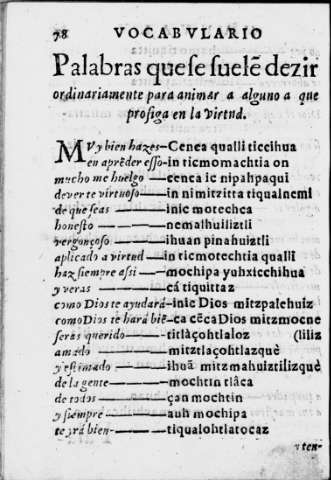 78 VOCABVLARIO
Palabras que se suelẽ dezir
ordinariamente para animar a alguno a que
prosiga en la virtud.
MVy bien hazes—Cenca qualli ticcihua
en aprẽder esso-in ticmomachtia on
mucho me huelgo—cenca ic nipahpaqui
de ver te virtuoso—in nimitzitta tiqualnemi
de que seas—inic motechca
honesto—nemalhuiliztli
vergonçoso—ihuan pinahuiztli
aplicado a virtud—in ticmotechtia qualli
haz siempre assi—mochipa yuhxicchihua
y veras—cá tiquittaz
como Dios te ayudará-inic Dios mitzpalehuiz
como Dios te hará biẽ-ca cẽca Dios mitzmocne
serás querido—titlàçohtlaloz (liliz
amado—mitztlaçohtlazquè
y estimado—ihuã mitzmahuiztilizquè
de la gente—mochtin tlâca
de todos—çan mochtin
y siempre—auh mochipa
te yrá bien—tiqualohtlatocaz